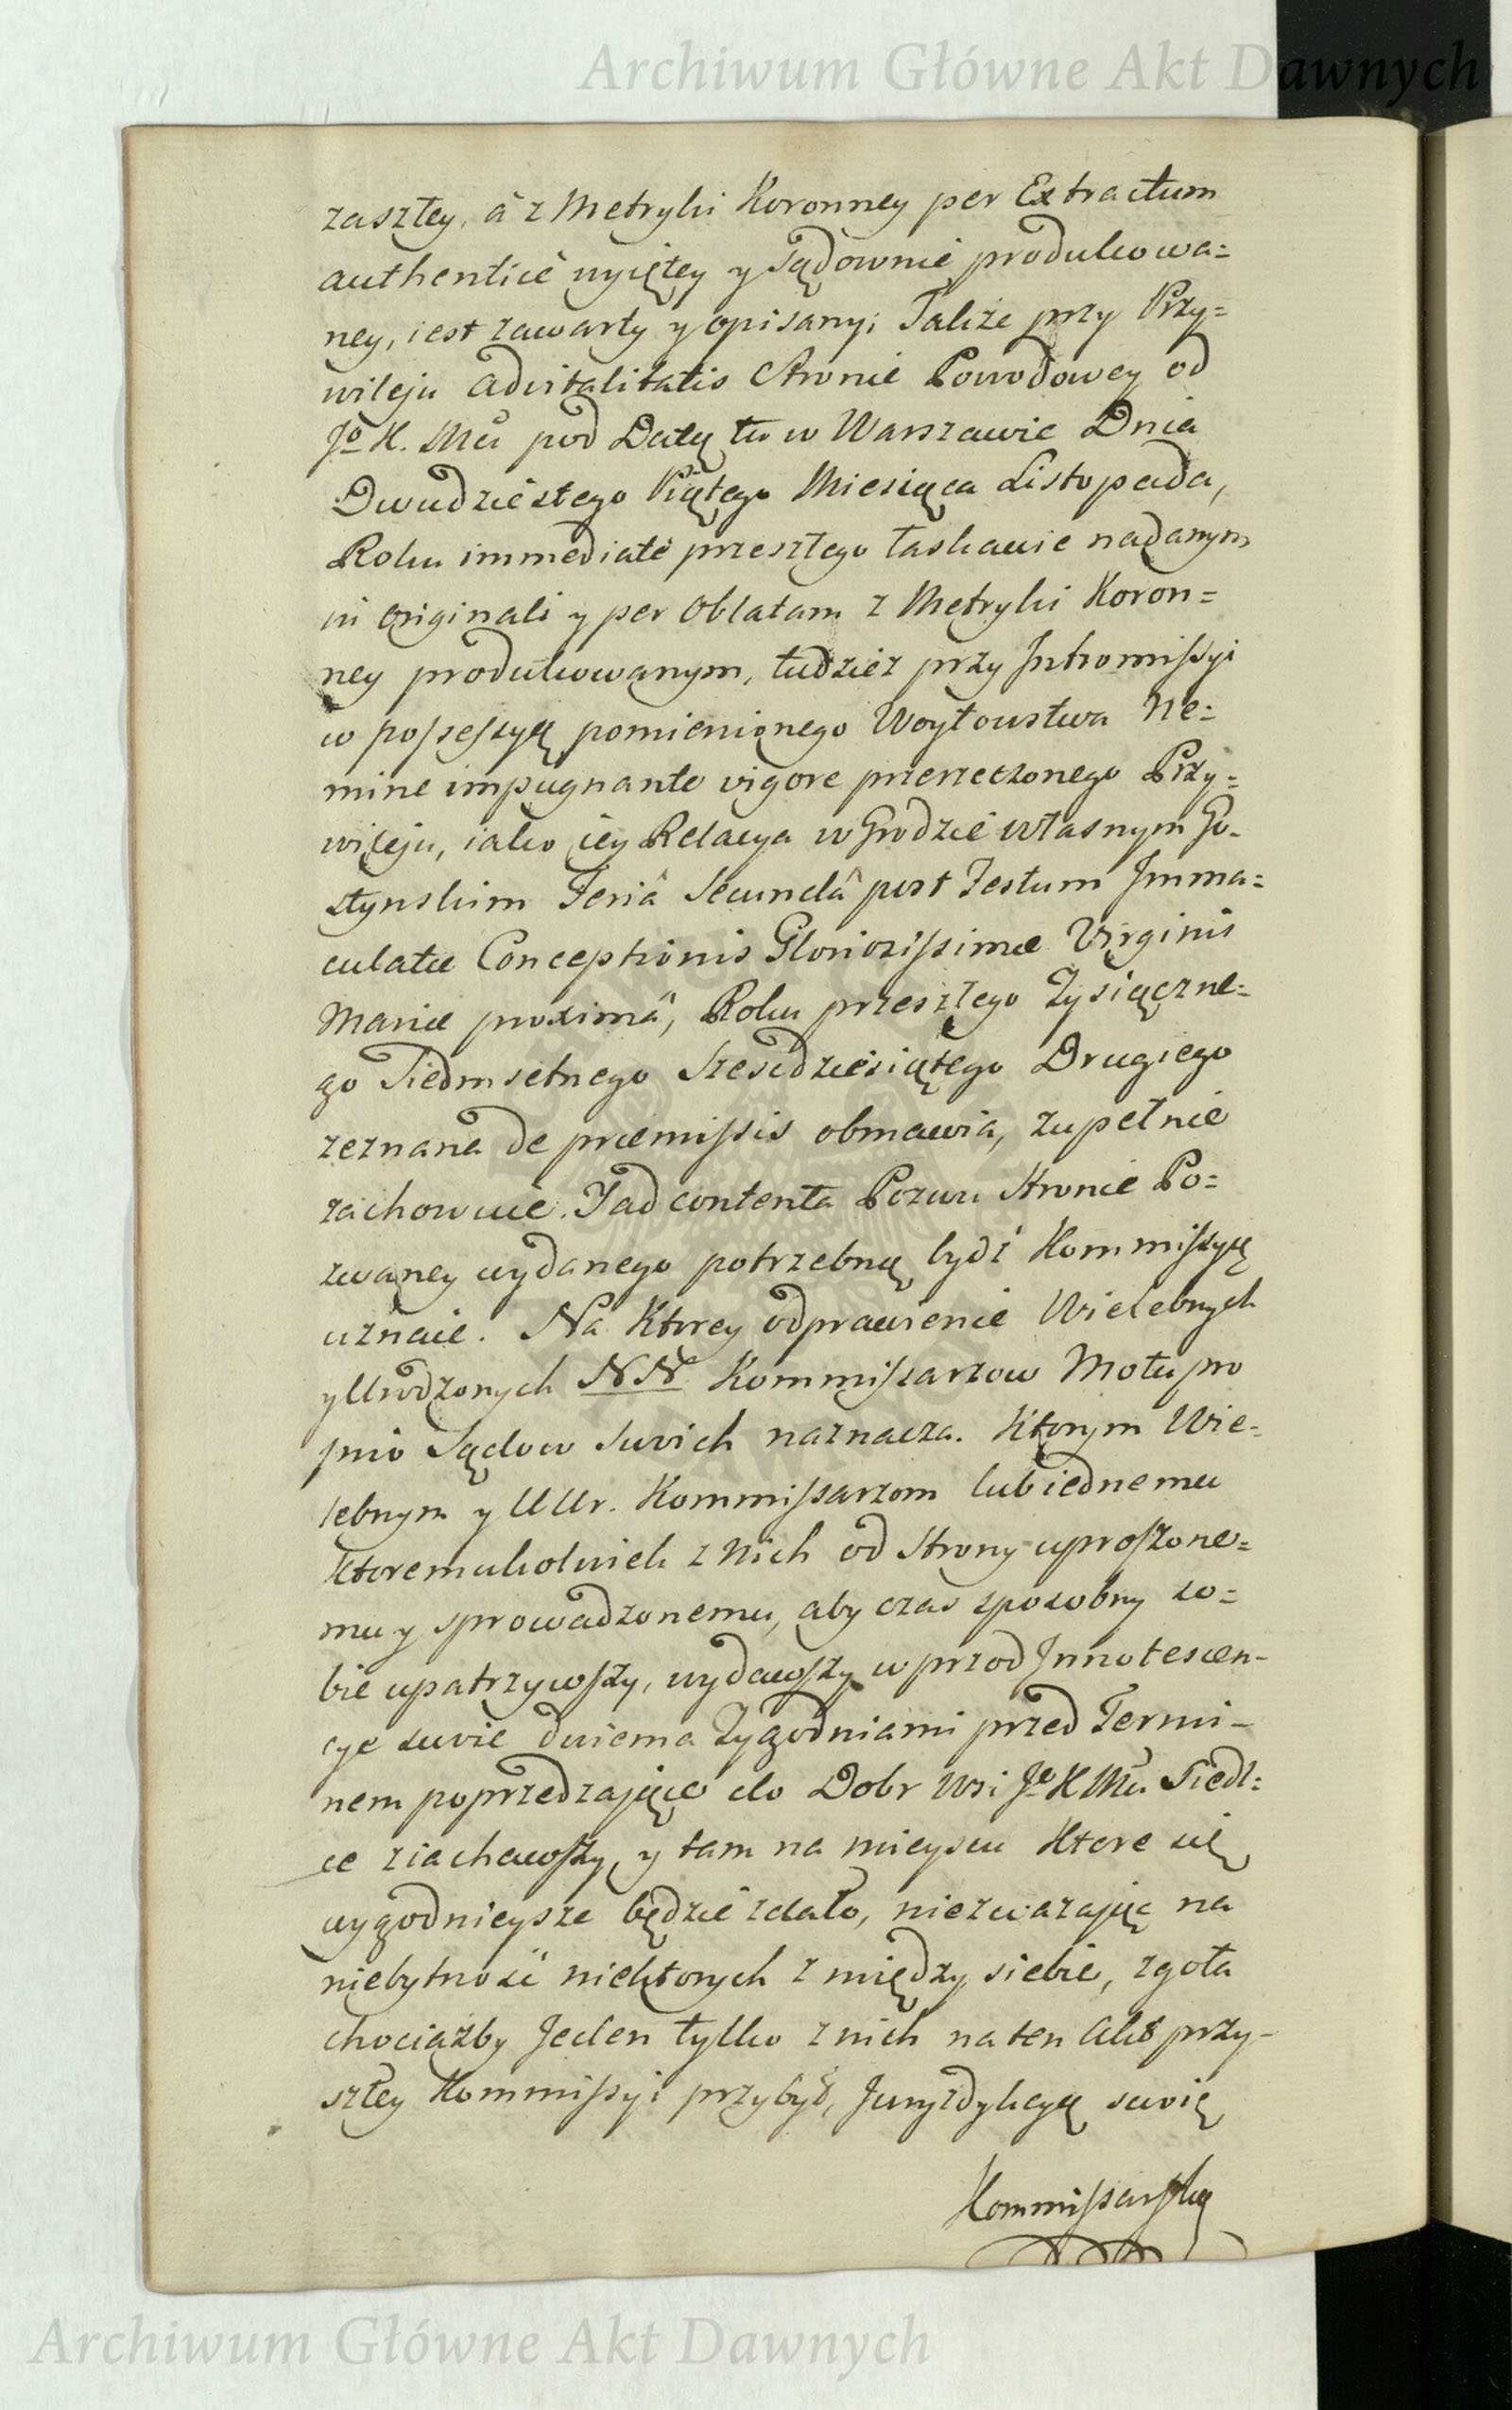 Archiwum Główne Akt Dawnych
zaszłey, à z Metryki Koronney per Extractum
authenticè wyiętey y Sądownie produkowa=
ney, iest zawarty y opisany; Także przy Przy=
wileju advitalitatis Stronie Powodowey od
Jo K. Mci pod Datą tu w Warszawie Dnia
Dwudziestego Piątego Miesiąca Listopada,
Roku immediatè przeszłego łaskawie nadanym
in originali y per oblatam z Metryki Koron=
ney produkowanym, tudzież przy Intromissyi
w possessyą pomienionego Woytowstwa Ne=
mine impugnante vigore przerzeczonego Przy=
wileju, iako iey Relacya w Grodzie własnym Go=
stynskim Feriâ Secundâ post Festum Imma=
culatæ Conceptionis Gloriosissimæ Virginis
Mariæ proximâ, Roku przeszłego Tysiączne=
go Siedmsetnego Szescdziesiątego Drugiego
zeznana de præmissis obmawia, zupełnie
zachowuie. Y ad contenta Pozwu Stronie Po=
zwaney wydanego potrzebną bydź Kommissyą
uznaie. Na Ktorey odprawienie Wielebnych
y Urodzonych NN Kommissarzow Motu pro
prio Sądow Swoich naznacza. Ktorym Wie=
lebnym y UUr. Kommissarzom lub iednemu
ktoremukolwiek z Nich od Strony uproszone=
mu y sprowadzonemu, aby czas sposobny so=
bie upatrzywszy, wydawszy wprzod Innotescen=
cye swoie dwiema Tygodniami przed Termi=
nem poprzedzaiące do Dobr Wsi Jo K Mci Siedl=
ce ziachawszy, y tam na mieyscu Ktore się
wygodnieysze będzie zdało, niezważaiąc na
niebytność niektorych z między siebie, zgoła
chociażby Jeden tylko z nich na ten Akt przy=
szłey Kommissyi przybył, Juryzdykcyą swoię
Kommissarską
Archiwum Główne Akt Dawnych